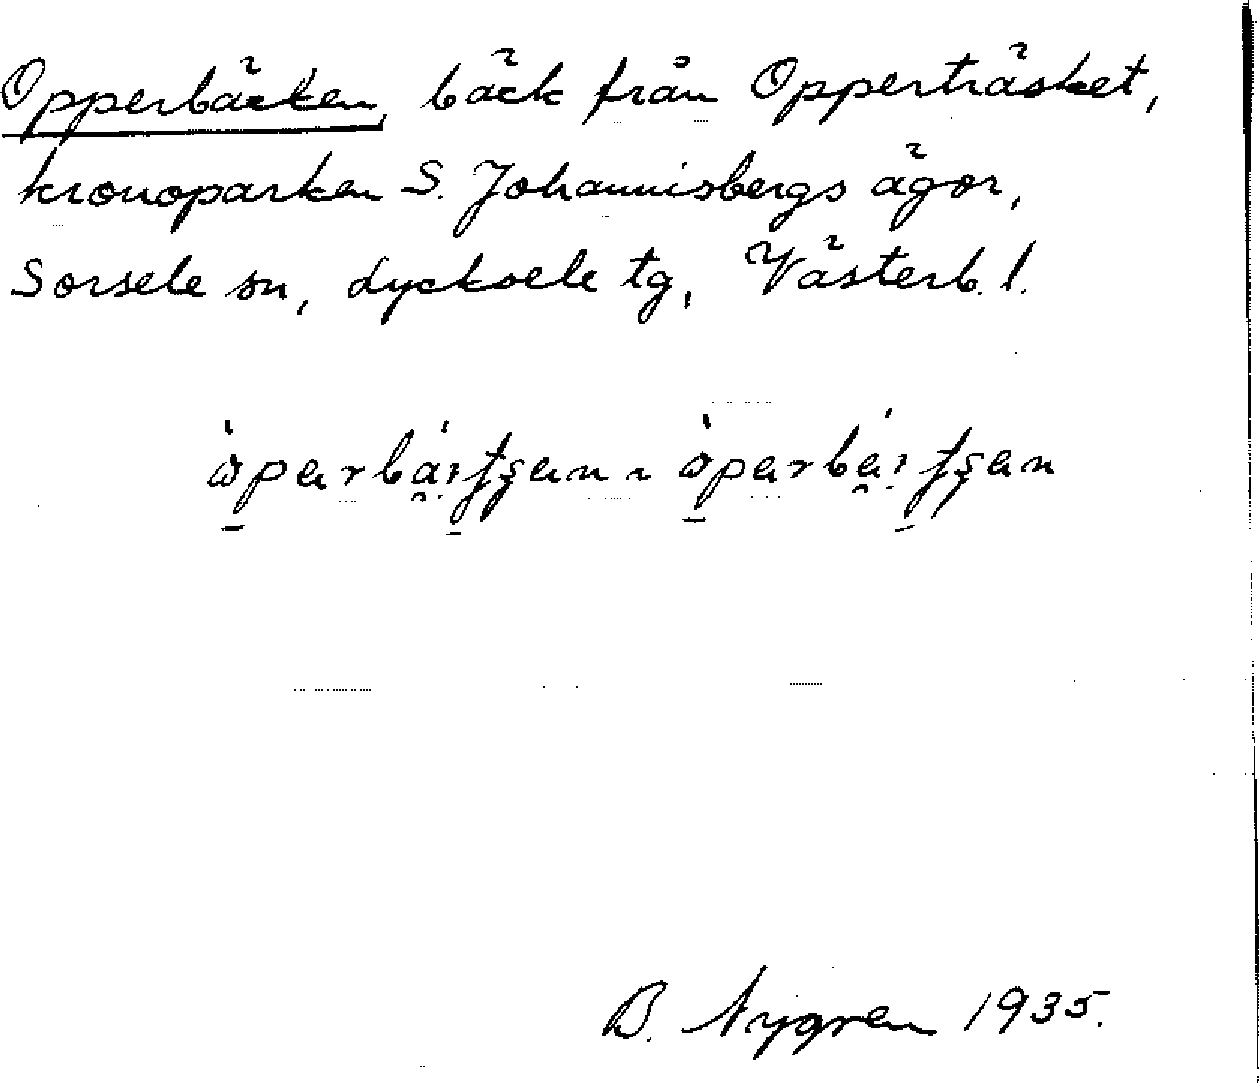 Opperbäcken, bäck från Oppperträsket,
kronoparken S. Johannisbergs ägor,
Sorsele sn, Lycksele tg, Västerb. l.
B. Nygren 1935.